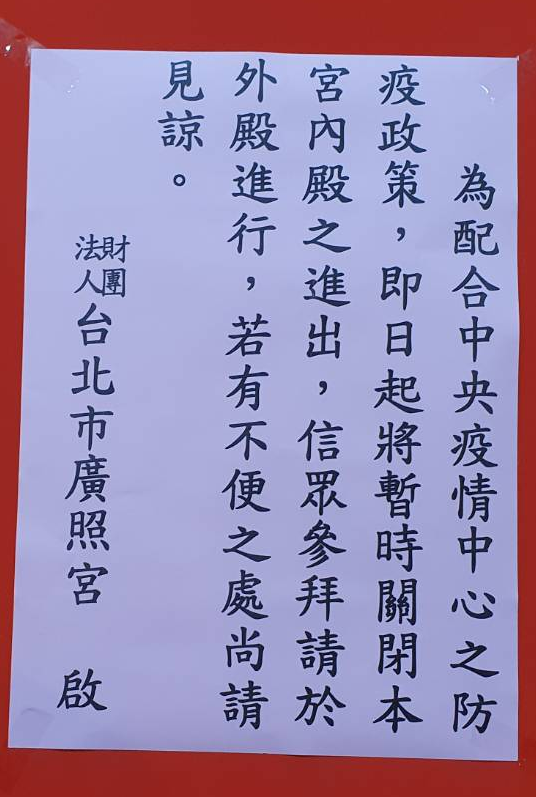 為配合中央疫情中心之防
疫政策，即日起將暫時關閉本
宮內殿之進出，信眾參拜請於
外殿進行，若有不便之處尚請
見諒。
財團法人台北市廣照宮 啟